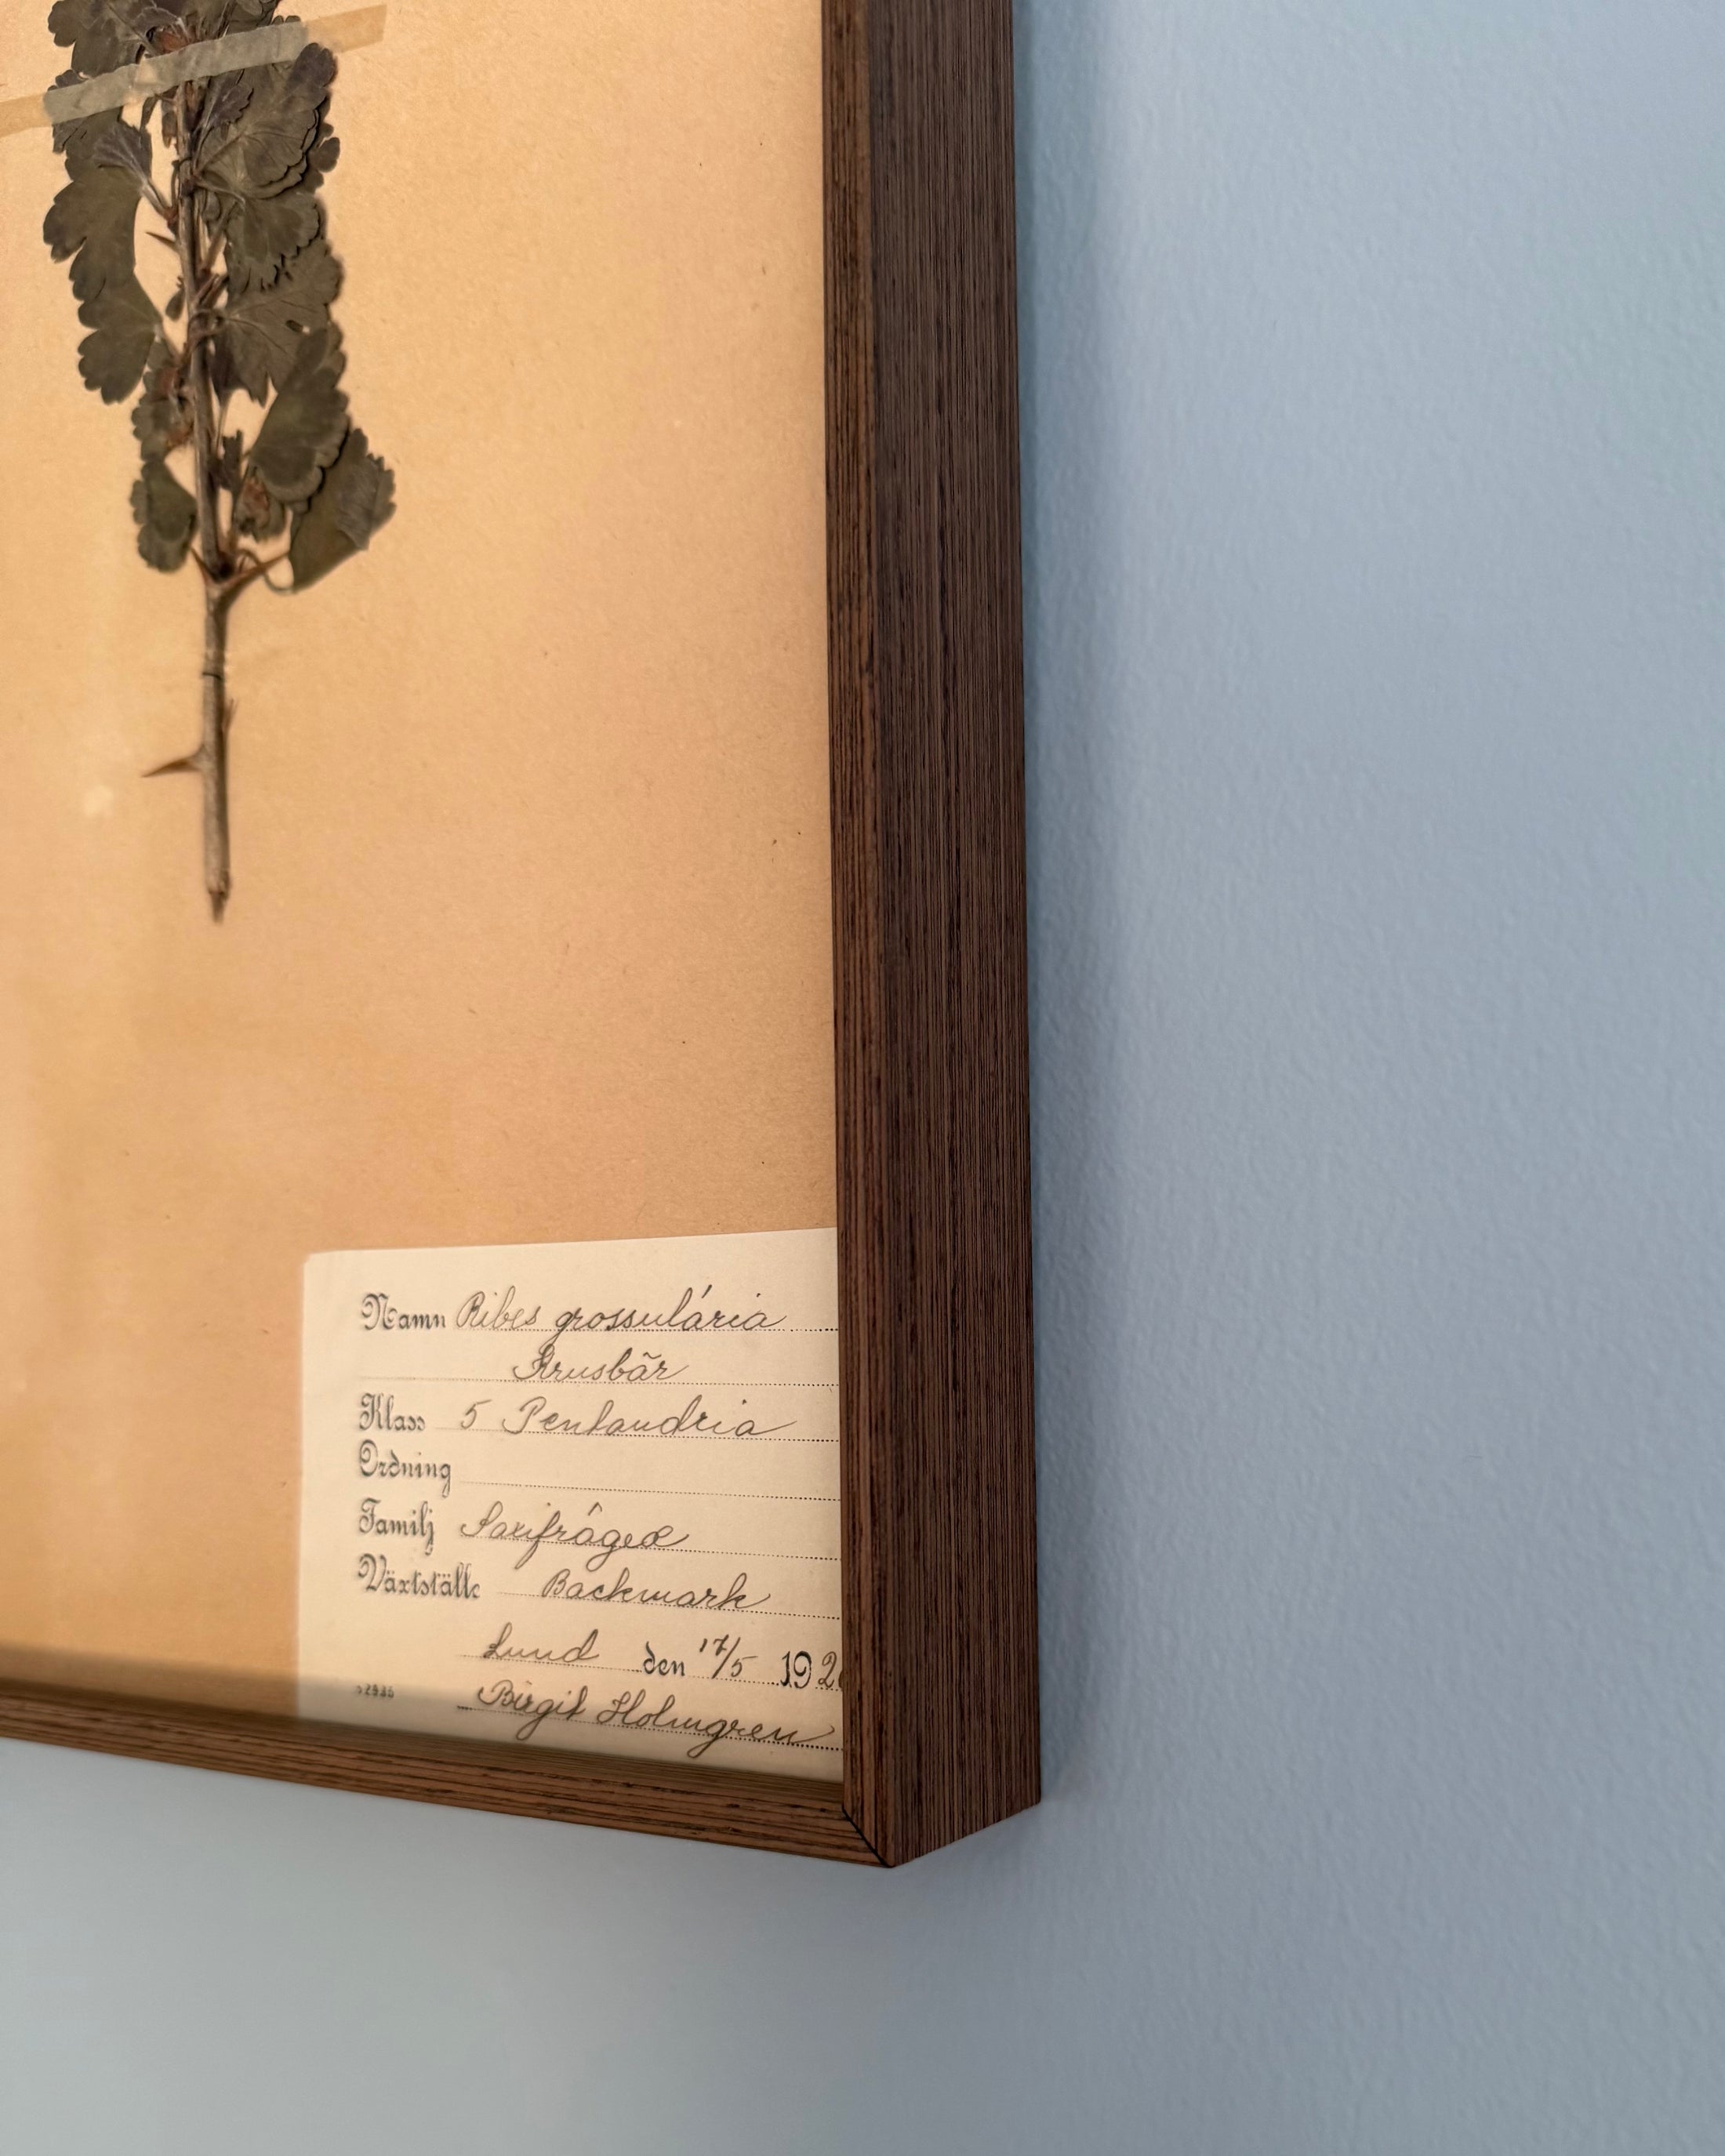 Namn Ribes grossulária
Krusbär
Klass 5 Pentandria
Ordning
Familj Saxifrágeæ
Växtställe Backmark
Lund den 17/5 192
Birgit Holmgren